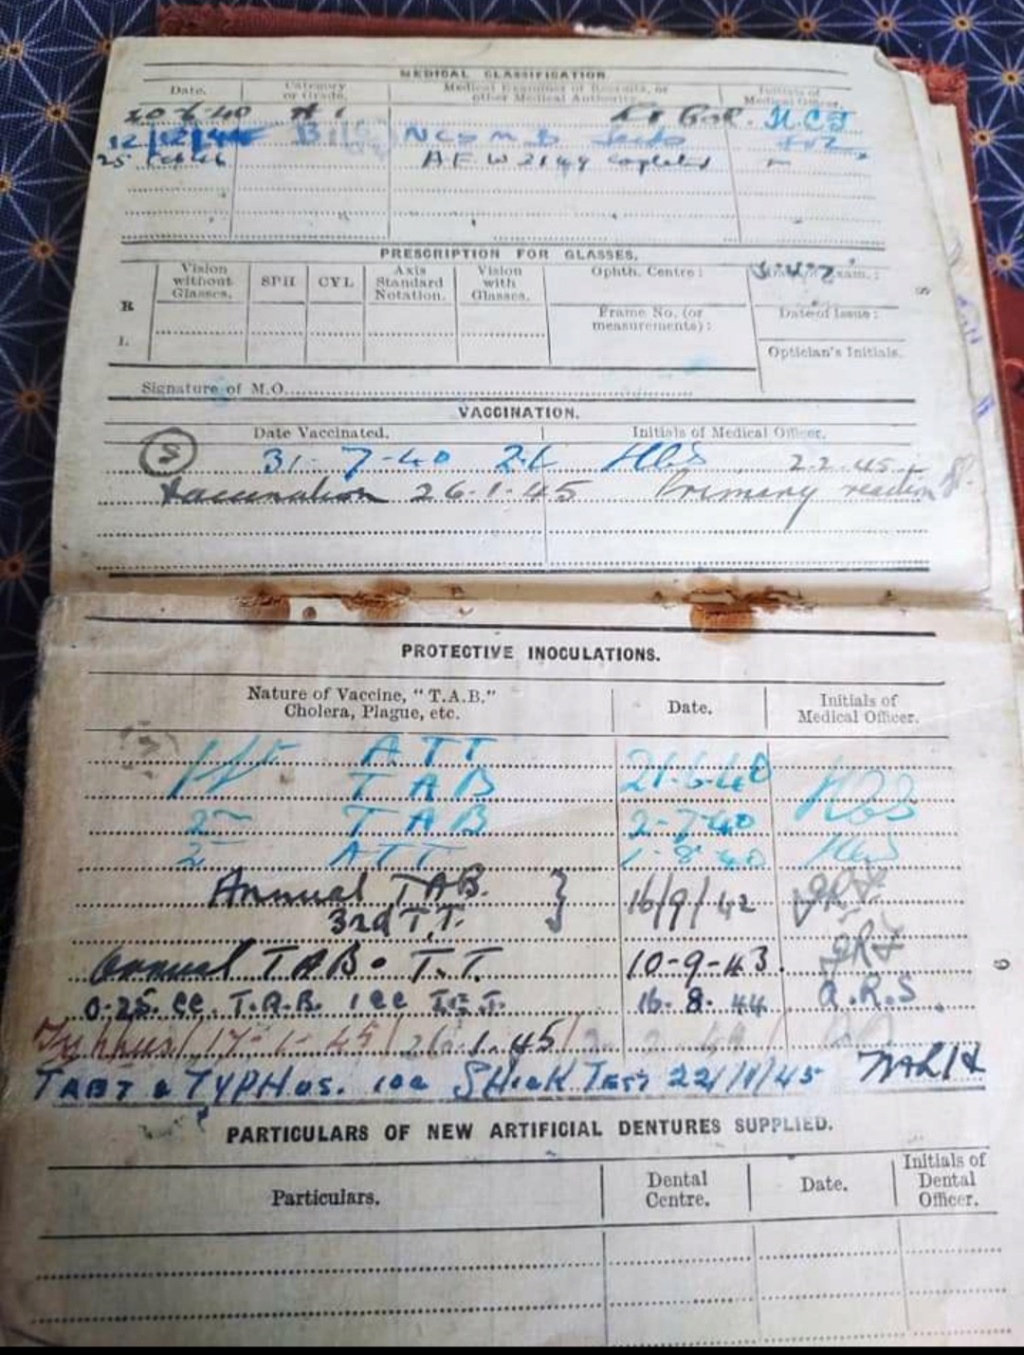 MEDICAL CLASSIFICATION
Date. Category or Grade. Medical Examiner of Recruits, or other Medical Authority. Initials of Medical Officer.
20-6-40 A 1
12/12/44 B1
A F W 2149 completed
PRESCRIPTION FOR GLASSES.
Vision without Glasses. SPH CYL Axis Standard Notation. Vision with Glasses. Ophth. Centre:
R Frame No. (or measurements): Date of Issue:
L Optician's Initials.
Signature of M.O.
VACCINATION.
Date Vaccinated. Initials of Medical Officer.
S 31-7-40 2.2.45
Vaccination 26.1.45 Primary reaction
PROTECTIVE INOCULATIONS.
Nature of Vaccine, "T.A.B." Cholera, Plague, etc. Date. Initials of Medical Officer.
1st ATT 21-6-40
TAB
2 TAB 2-7-40
2 ATT 1-8-40
Annual TAB. } 16/9/42
3rd T.T.
Annual TAB. T.T. 10-9-43.
0.25. cc. T.A.B. 1 cc 16.8.44 A.R.S.
Typhus/17-1-45/26.1.45/
TABT & TYPHUS. 1cc SHICK TEST
PARTICULARS OF NEW ARTIFICIAL DENTURES SUPPLIED.
Particulars. Dental Centre. Date. Initials of Dental Officer.